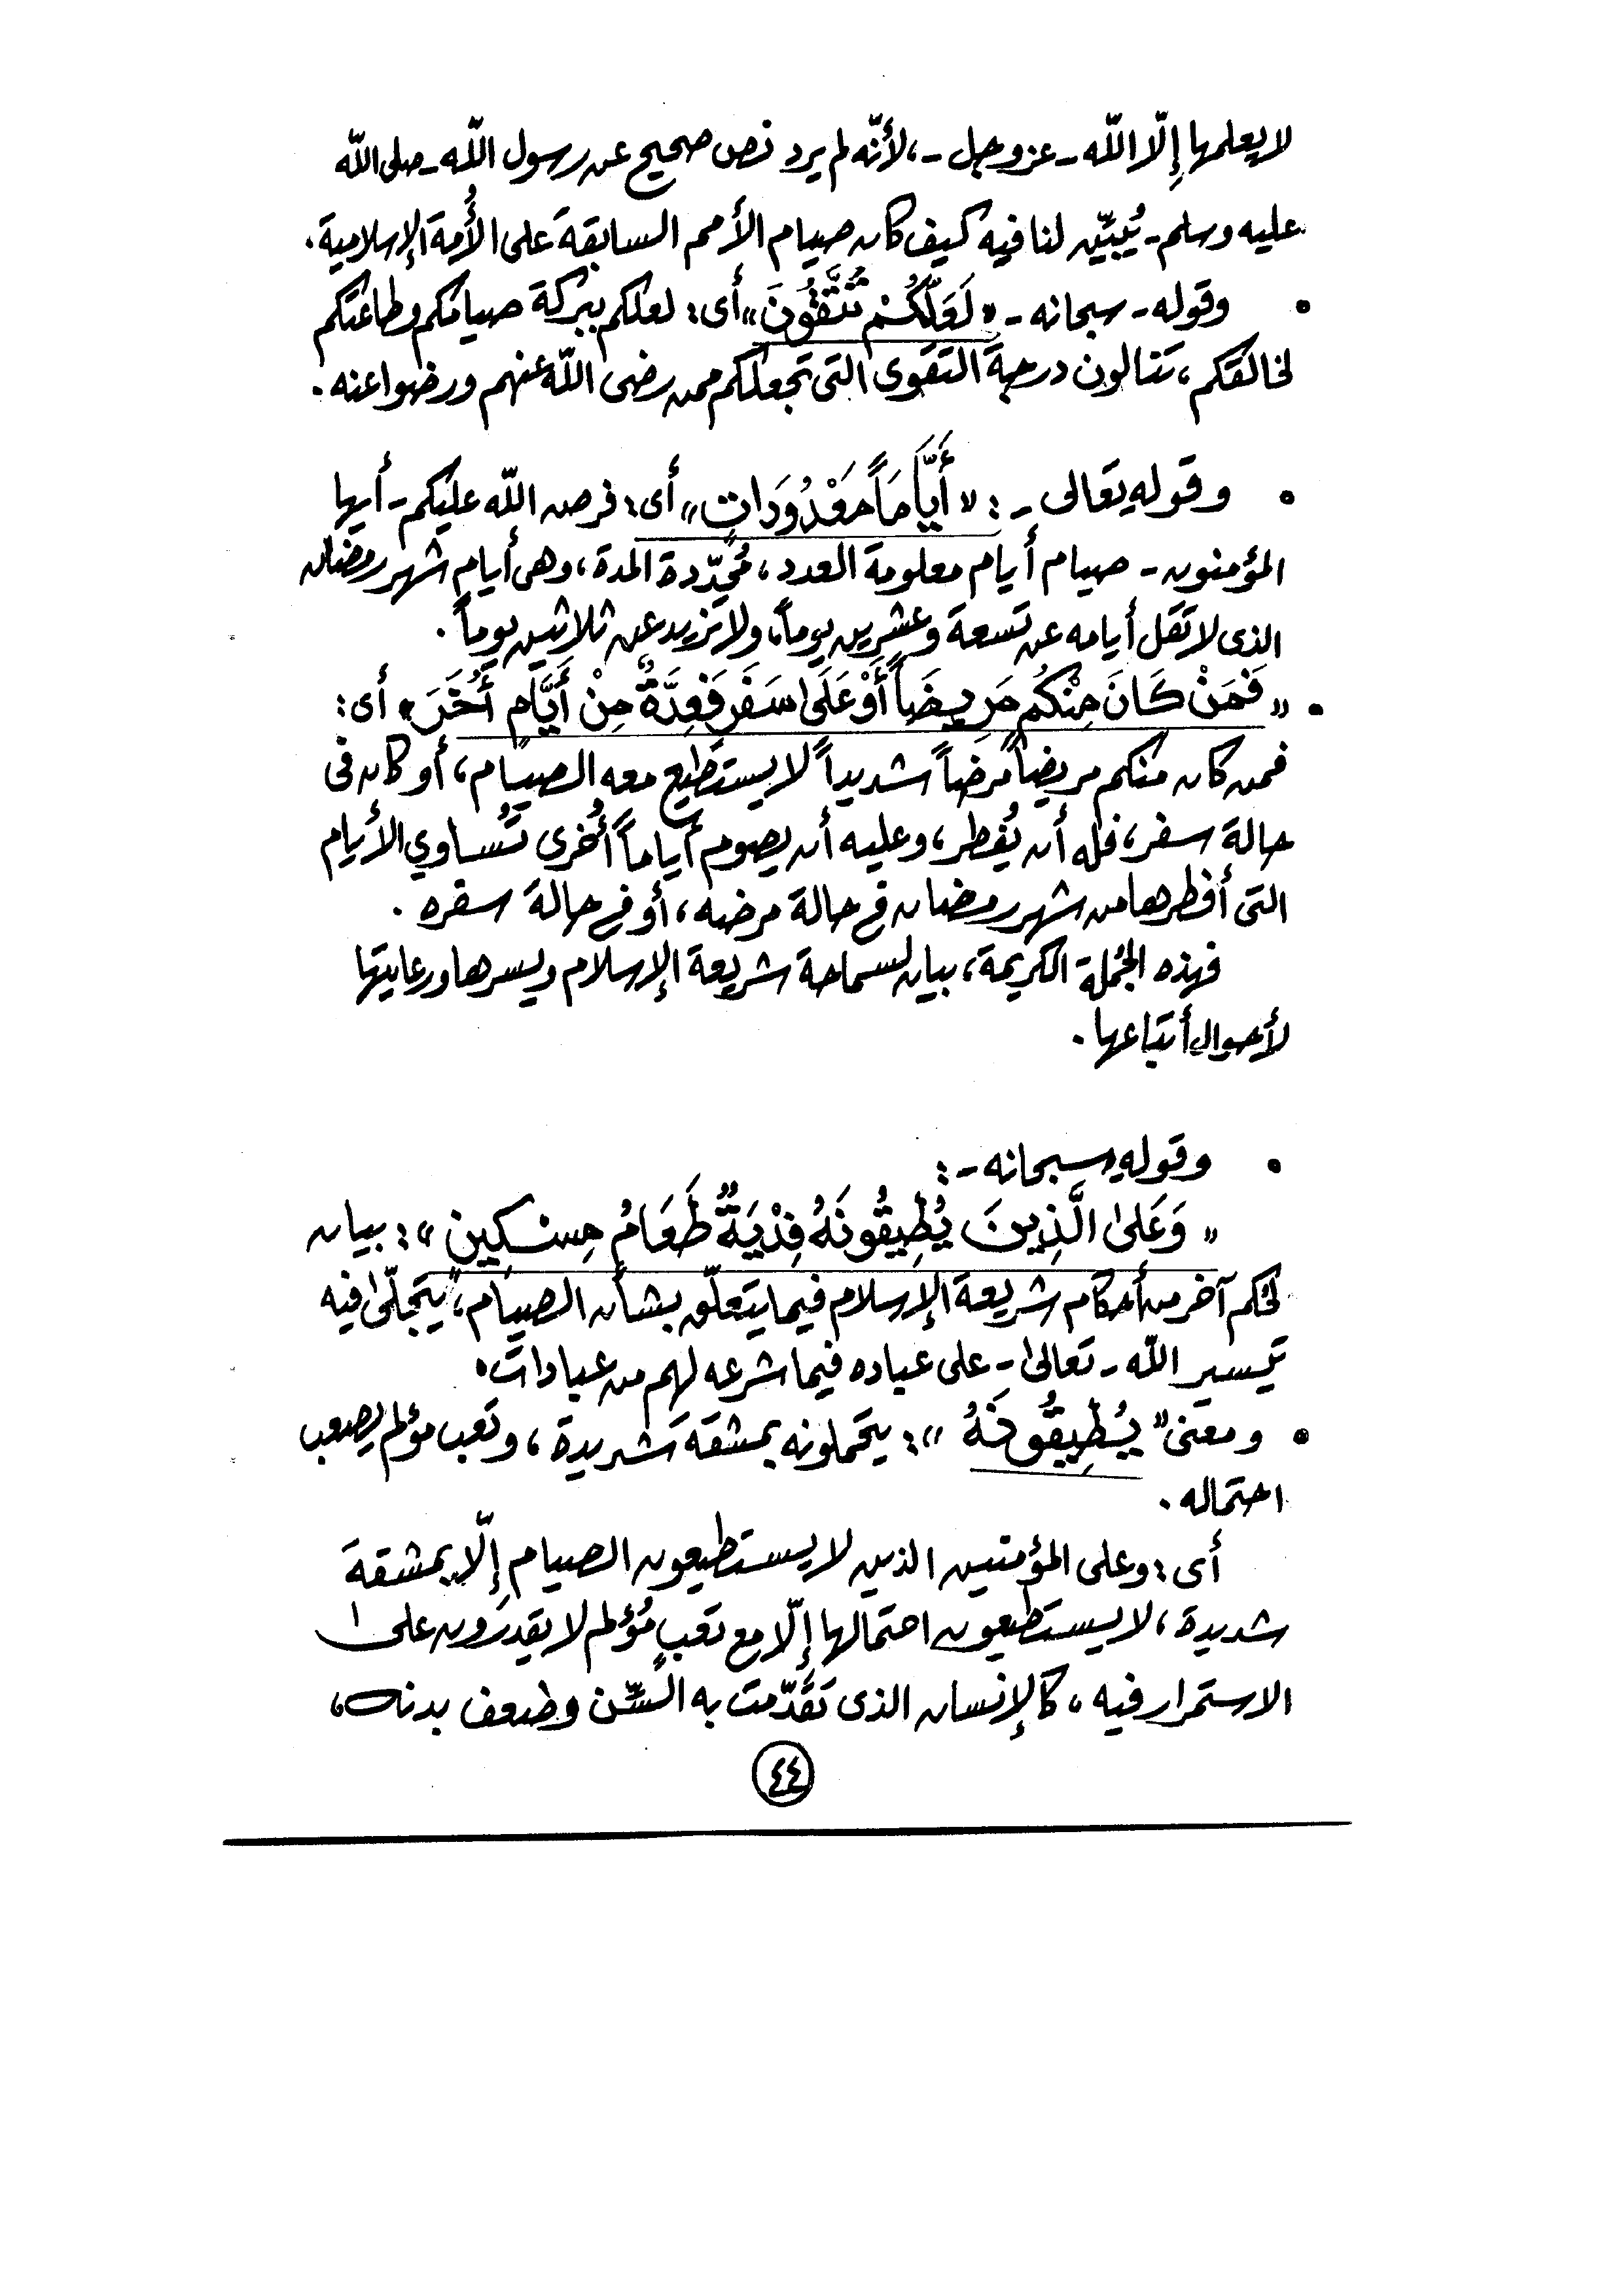 لا يعلمها إِلّا اللّه - عز وجل -، لأنّه لم يرد نص صحيح عن رسول اللّه - صلى اللّه
عليه وسلم - يُبيِّن لنا فيه كيف كان صيام الأمم السابقة على الأُمة الإسلامية.
• وقوله - سبحانه - «لَعَلَّكُمْ تَتَّقُونَ» أى: لعلكم ببركة صيامكم وطاعتكم
لخالقكم، تنالون درجة التقوى التى تجعلكم ممن رضى اللّه عنهم ورضوا عنه.
• وقوله تعالى -: «أَيَّاماً مَعْدُودَاتٍ» أى: فرض اللّه عليكم - أيها
المؤمنون - صيام أيام معلومة العدد، مُحدّدة المدة، وهى أيام شهر رمضان
الذى لا تقل أيامه عن تسعة وعشرين يوماً، ولا تزيد عن ثلاثين يوماً.
• «فَمَنْ كَانَ مِنْكُم مَرِيضاً أَوْ عَلَىٰ سَفَرٍ فَعِدَّةٌ مِنْ أَيَّامٍ أُخَرَ» أى:
فمن كان منكم مريضاً مرضاً شديداً لا يستطيع معه الصيام، أو كان فى
حالة سفر، فله أن يُفطر، وعليه أن يصوم أياماً أُخرى تُساوي الأيام
التى أفطرها من شهر رمضان فى حالة مرضه، أو فى حالة سفره.
فهذه الجُملة الكريمة، بيان لسماحة شريعة الإسلام ويسرها ورعايتها
لأحوال أتباعها.
• وقوله سبحانه -:
«وَعَلىٰ الَّذِينَ يُطِيقُونَهُ فِدْيَةٌ طَعَامُ مِسْكِينٍ»: بيان
لحُكم آخر من أحكام شريعة الإسلام فيما يتعلّق بشأن الصيام، يتجلّىٰ فيه
تيسير اللّه - تعالىٰ - على عباده فيما شرعه لهم من عبادات.
• ومعنى "يُطِيقُونَهُ": يتحملونه بمشقة شديدة، وتعب مؤلم يصعب
احتماله.
أى: وعلى المؤمنين الذين لا يستطيعون الصيام إلّا بمشقة
شديدة، لا يستطيعون احتمالها إلّا مع تعبٍ مُؤلم لا يقدرون على
الاستمرار فيه، كالإنسان الذى تقدّمت به السِّن وضعف بدنه،
٤٤